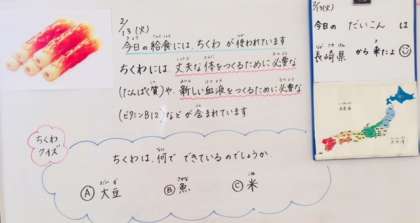 2/13(火)
今日の給食には、ちくわが使われています
ちくわには丈夫な体をつくるために必要な
(たんぱく質)や、新しい血液をつくるために必要な
(ビタミンB12)などが含まれています
ちくわ
クイズ
ちくわは、何でできているのでしょうか
Ⓐ大豆 Ⓑ魚 Ⓒ米
今日の だいこん は
長崎県 から来たよ